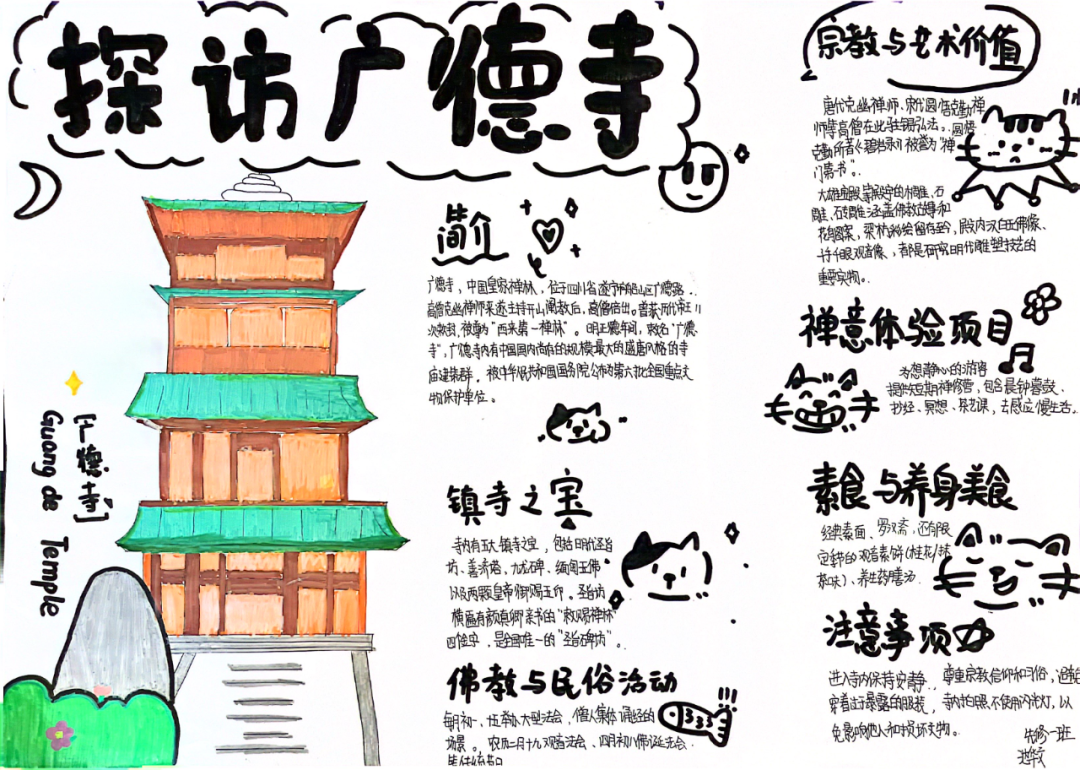 探访广德寺
简介
广德寺,中国皇家禅林,位于四川省遂宁市船山区广德路,
高僧克幽禅师来遂主持开山阐教后,高僧倍出。曾获历代帝王11
次敕封,被尊为“西来第一禅林”。明正德年间,敕名“广德
寺”,广德寺内有中国国内尚存的规模最大的盛唐风格的寺
庙建筑群。被中华人民共和国国务院公布为第六批全国重点文
物保护单位。
镇寺之宝
寺内有五大镇寺之宝,包括明代圣旨
坊、善济塔、九龙碑、缅甸玉佛
以及两颗皇帝御赐玉印。圣旨坊
横匾有颜真卿亲书的“敕赐禅林”
四個字,是全国唯一的“圣旨牌坊”。
佛教与民俗活动
每月初一、十五举办大型法会,僧人集体诵经的
场景。,农历二月十九观音法会、四月初八佛诞法会
[广德寺]
Guang de Temple
宗教与艺术价值
唐代克幽禅师、宋代圆悟克勤禅
师等高僧在此驻锡弘法。圆悟
克勤所著《碧岩录》被誉为“禅
门第一书”。
大雄宝殿等殿宇的木雕、石
雕、砖雕涵盖佛教故事和
花鸟图案,梁枋彩绘留存至今,殿内汉白玉佛像、
千手千眼观音像,都是研究明代雕塑技艺的
重要实物。
禅意体验项目
为想静心的游客
提供短期禅修营,包含晨钟暮鼓、
抄经、冥想、茶艺课,去感应慢生活。
素食与养身美食
经典素面、罗汉斋,还有限
定款的观音素饼(桂花/抹
茶味)、养生药膳汤
注意事项
进入寺内保持安静,尊重宗教信仰和习俗,避免
穿着过于暴露的服装,寺内拍照不使用闪光灯,以
免影响他人和损坏文物。